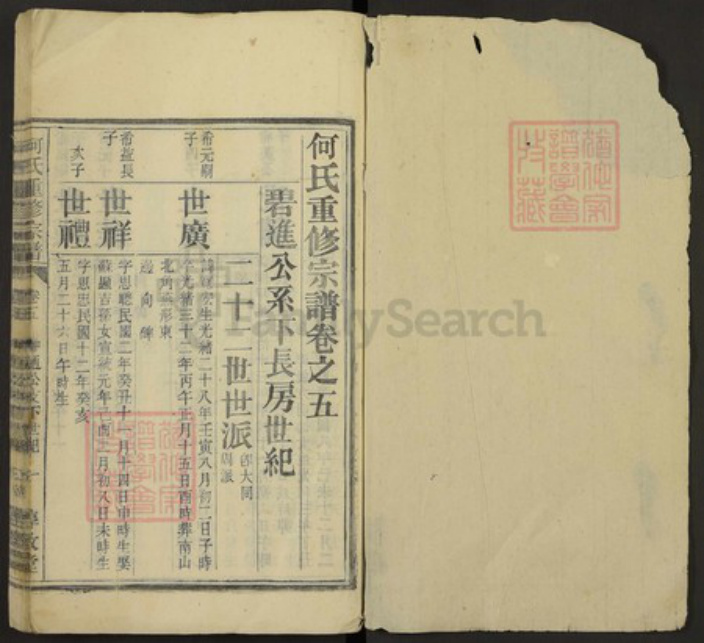 何氏重修宗譜卷之五
碧進公系下長房世紀
二十二世世派
卽大同
周派
希元嗣
子
世廣
生光緒二十八年壬寅八月初二日子時
光緒三十二年丙午正月十五日酉時葬南山
形東
邊向碑
希盈長
子
世祥
字思聰民國二年癸丑十一月十四日申時生娶
蘇園吉孫女宣統元年己酉二月初八日未時生
次子
世禮
字思忠民國十二年癸亥
五月二十六日午時生
何氏重修宗譜
卷五
FamilySearch